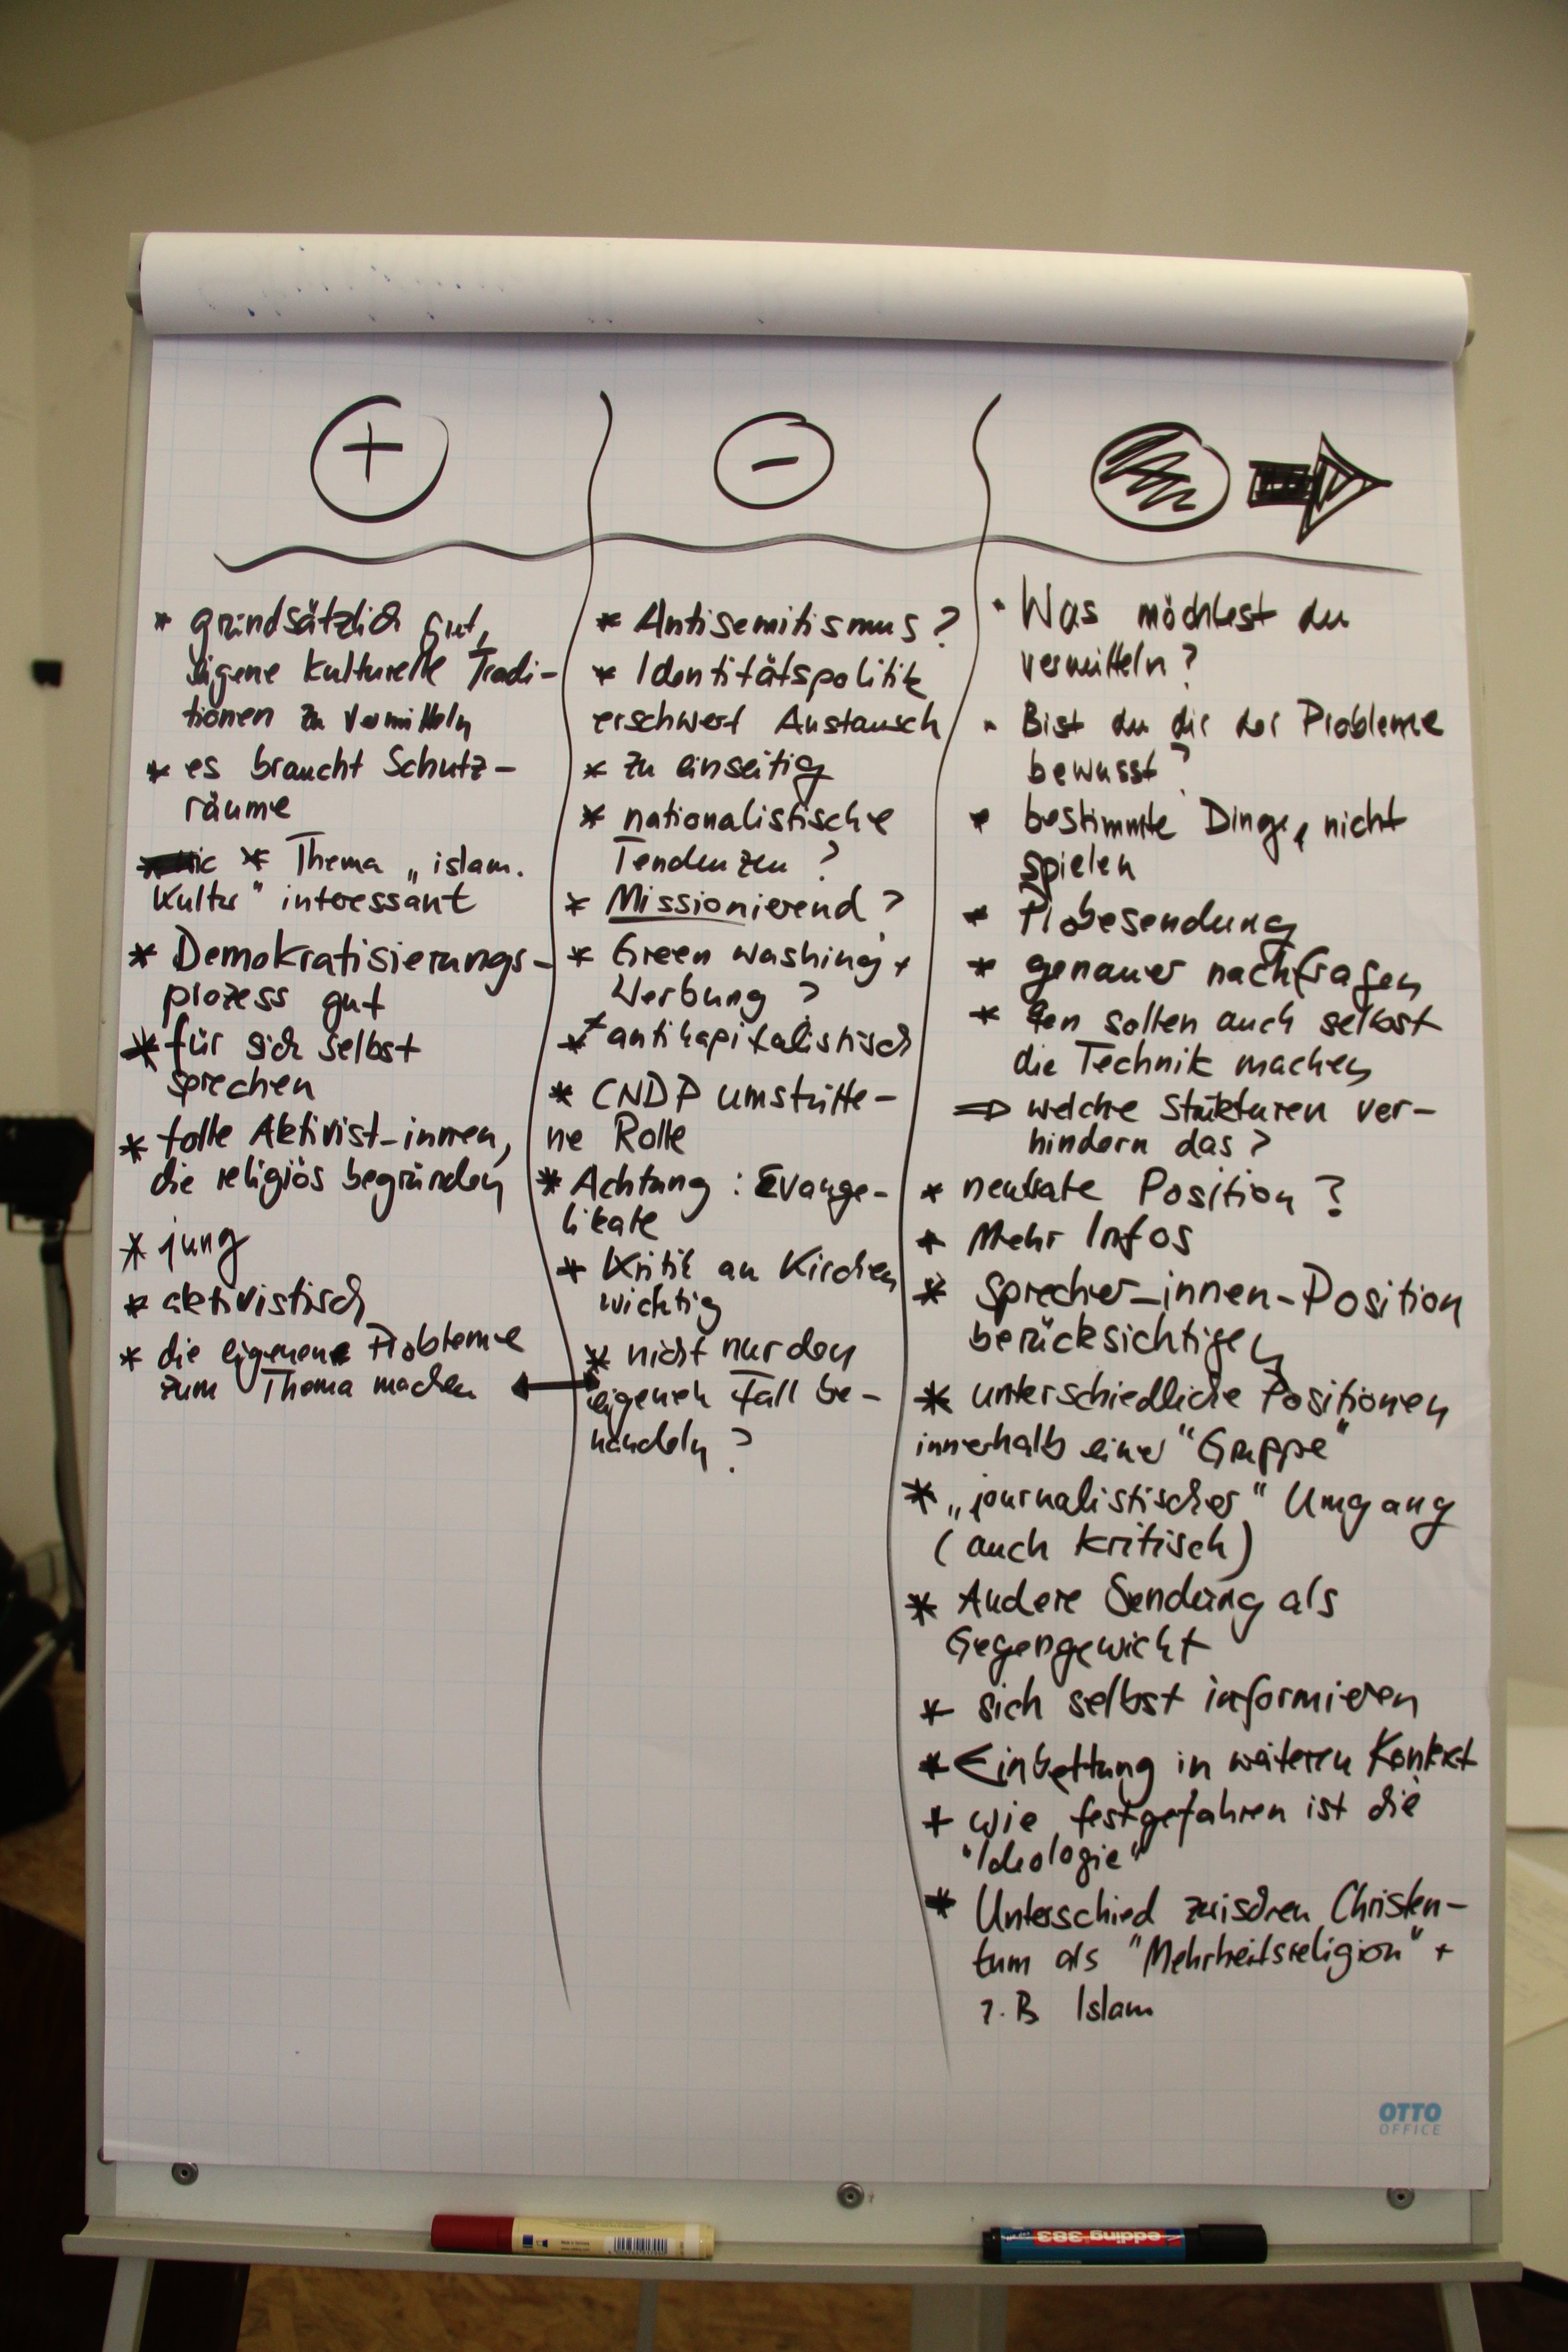 +
* grundsätzlich gut,
eigene kulturelle Tradi-
tionen zu vermitteln
* es braucht Schutz-
räume
* Thema „islam.
Kultur" interessant
* Demokratisierungs-
prozess gut
* für sich selbst
sprechen
* tolle Aktivist_innen,
die religiös begründen
* jung
* aktivistisch
* die eigenen Probleme
zum Thema machen
-
* Antisemitismus?
* Identitätspolitik
erschwert Austausch
* zu einseitig
* nationalistische
Tendenzen?
* Missionierend?
* Green washing +
Werbung?
* antikapitalistisch
* CNDP umstritte-
ne Rolle
* Achtung: Evange-
likale
* Kritik an Kirchen
wichtig
* nicht nur den
eigenen Fall be-
handeln?
* Was möchtest du
vermitteln?
* Bist du dir der Probleme
bewusst?
* bestimmte Dinge, nicht
spielen
* Probesendung
* genauer nachfragen
* sollen auch selbst
die Technik machen
⇒ welche Strukturen ver-
hindern das?
* neutrale Position?
* Mehr Infos
* Sprecher_innen-Position
berücksichtigen
* unterschiedliche Positionen
innerhalb einer "Gruppe"
* „journalistischer" Umgang
(auch kritisch)
* Andere Sendung als
Gegengewicht
* sich selbst informieren
* Einbettung in weiteren Kontext
* wie festgefahren ist die
"Ideologie"
* Unterschied zwischen Christen-
tum als "Mehrheitsreligion" +
z.B Islam
OTTO
OFFICE
edding 383